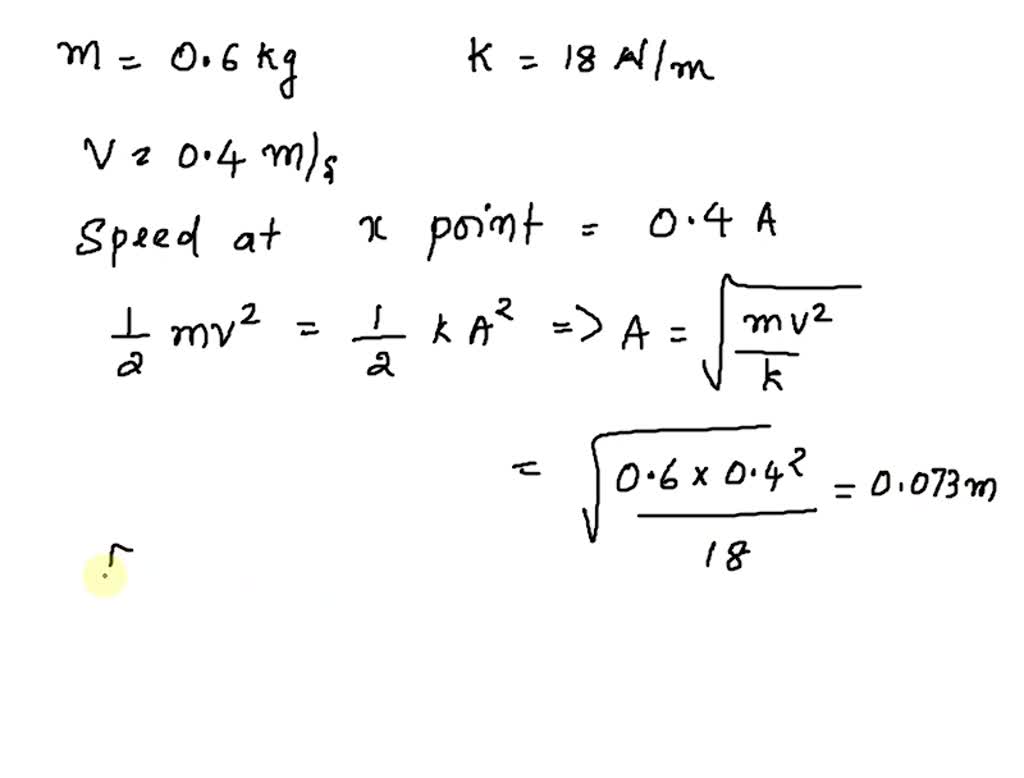 m = 0.6 kg K = 18 N/m
V = 0.4 m/s
Speed at x point = 0.4 A
1/2 mv² = 1/2 k A² => A = √(mv²/k)
= √(0.6 x 0.4²/18) = 0.073m